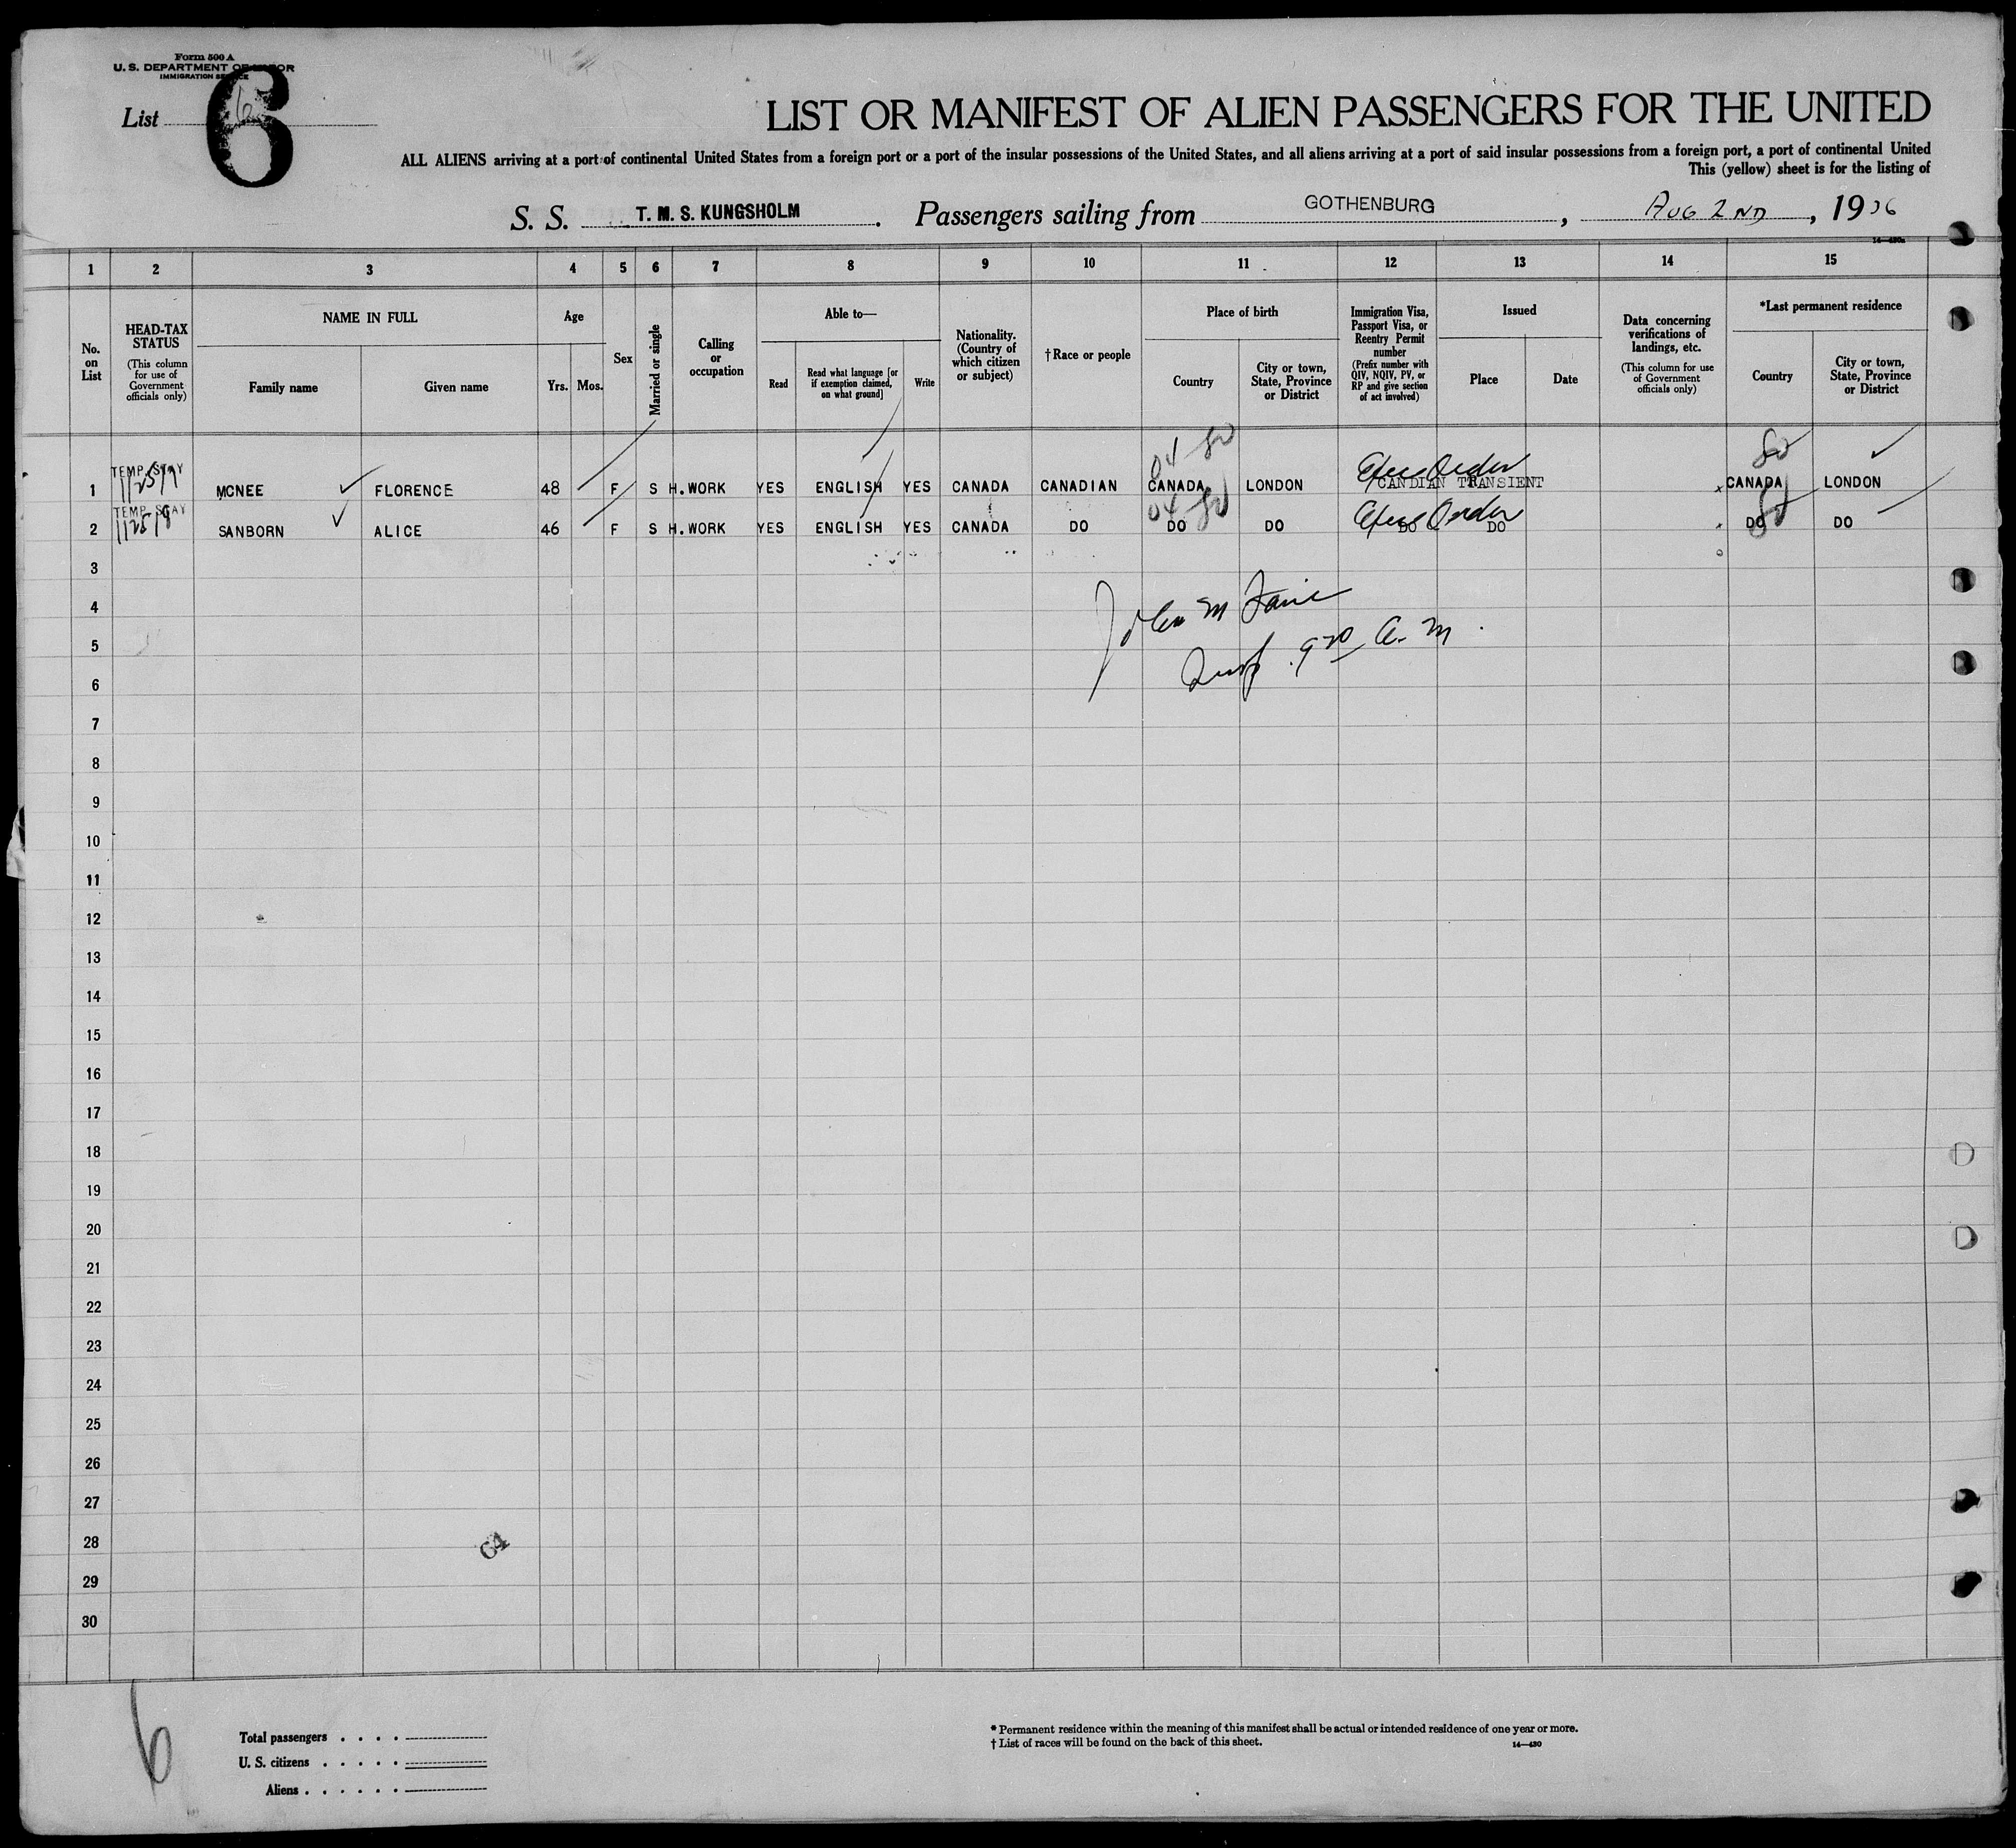 Form 500 A
U. S. DEPARTMENT OF LABOR
IMMIGRATION SERVICE
List 6
6
LIST OR MANIFEST OF ALIEN PASSENGERS FOR THE UNITED
ALL ALIENS arriving at a port of continental United States from a foreign port or a port of the insular possessions of the United States, and all aliens arriving at a port of said insular possessions from a foreign port, a port of continental United
This (yellow) sheet is for the listing of
S. S. T. M. S. KUNGSHOLM. Passengers sailing from GOTHENBURG, AUG 2ND, 1936
14—430a
1 2 3 4 5 6 7 8 9 10 11 12 13 14 15
No. on List
HEAD-TAX STATUS
(This column for use of Government officials only)
NAME IN FULL
Family name Given name
Age
Yrs. Mos.
Sex
Married or single
Calling or occupation
Able to—
Read
Read what language [or if exemption claimed, on what ground]
Write
Nationality. (Country of which citizen or subject)
†Race or people
Place of birth
Country
City or town, State, Province or District
Immigration Visa, Passport Visa, or Reentry Permit number
(Prefix number with QIV, NQIV, PV, or RP and give section of act involved)
Issued
Place Date
Data concerning verifications of landings, etc.
(This column for use of Government officials only)
*Last permanent residence
Country
City or town, State, Province or District
04 80 80
TEMP. STAY
1 MCNEE FLORENCE 48 F S H.WORK YES ENGLISH YES CANADA CANADIAN CANADA LONDON Exec Order CANDIAN TRANSIENT x CANADA LONDON
TEMP. STAY 04 80 80
2 SANBORN ALICE 46 F S H.WORK YES ENGLISH YES CANADA DO DO DO Exec Order DO DO DO DO
3
4
John M
5
Insp. 9 30 A. M.
6
7
8
9
10
11
12
13
14
15
16
17
18
19
20
21
22
23
24
25
26
27
28
64
29
30
6
Total passengers . . . .
U. S. citizens . . . . .
Aliens . . . . . .
* Permanent residence within the meaning of this manifest shall be actual or intended residence of one year or more.
† List of races will be found on the back of this sheet.
14—430